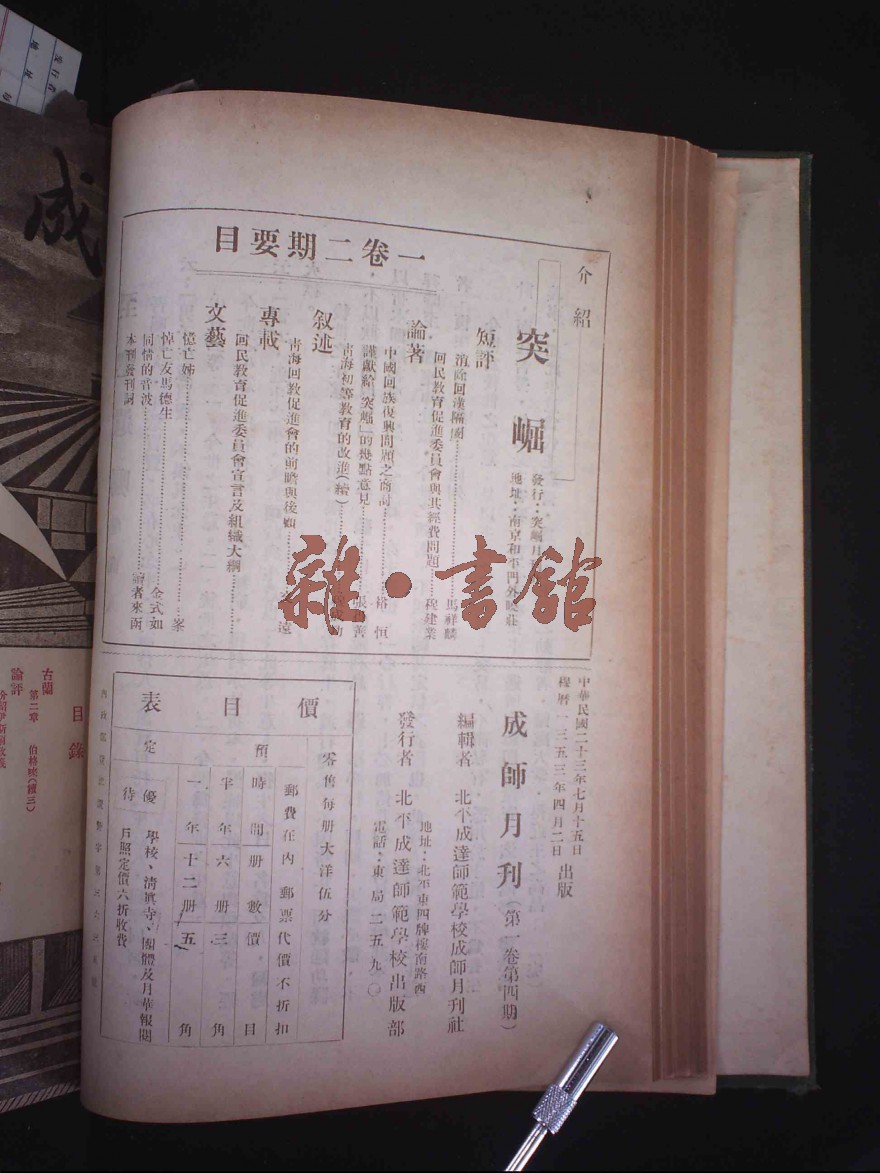 介紹
突崛
發行：突崛月
地址：南京和平門外曉莊
一卷二期要目
短評
消除回漢隔閡 馬祥麟
回民教育促進委員會與其經費問題 穆建業
論著
中國回族復興問題之商討 裕恒
謹獻給「突崛」的幾點意見
青海初等教育的改進(續)
叙述
青海回教促進會的前瞻與後顧 遠
專載
回民教育促進委員會宣言及組織大綱
文藝
憶亡姊 峯
悼亡友馬德生 金式如
同情的音波 讀者來函
本刊發刊詞
中華民國二十三年七月十五日
穆曆一三五三年四月二日 出版
成師月刊(第一卷第四期)
編輯者 北平成達師範學校成師月刊社
地址：北平東四牌樓南路西
發行者 北平成達師範學校出版部
電話：東局二五九〇
價目表
零售每册大洋伍分
郵費在內 郵票代價不折扣
預定
時間 册數 價目
半年 六册 三角
一年 十二册 五角
優待
學校、清眞寺、團體及月華報閱
戶照定價六折收費
雜·書館
成
目錄
古蘭
第二章 伯格喫(續三)
論評